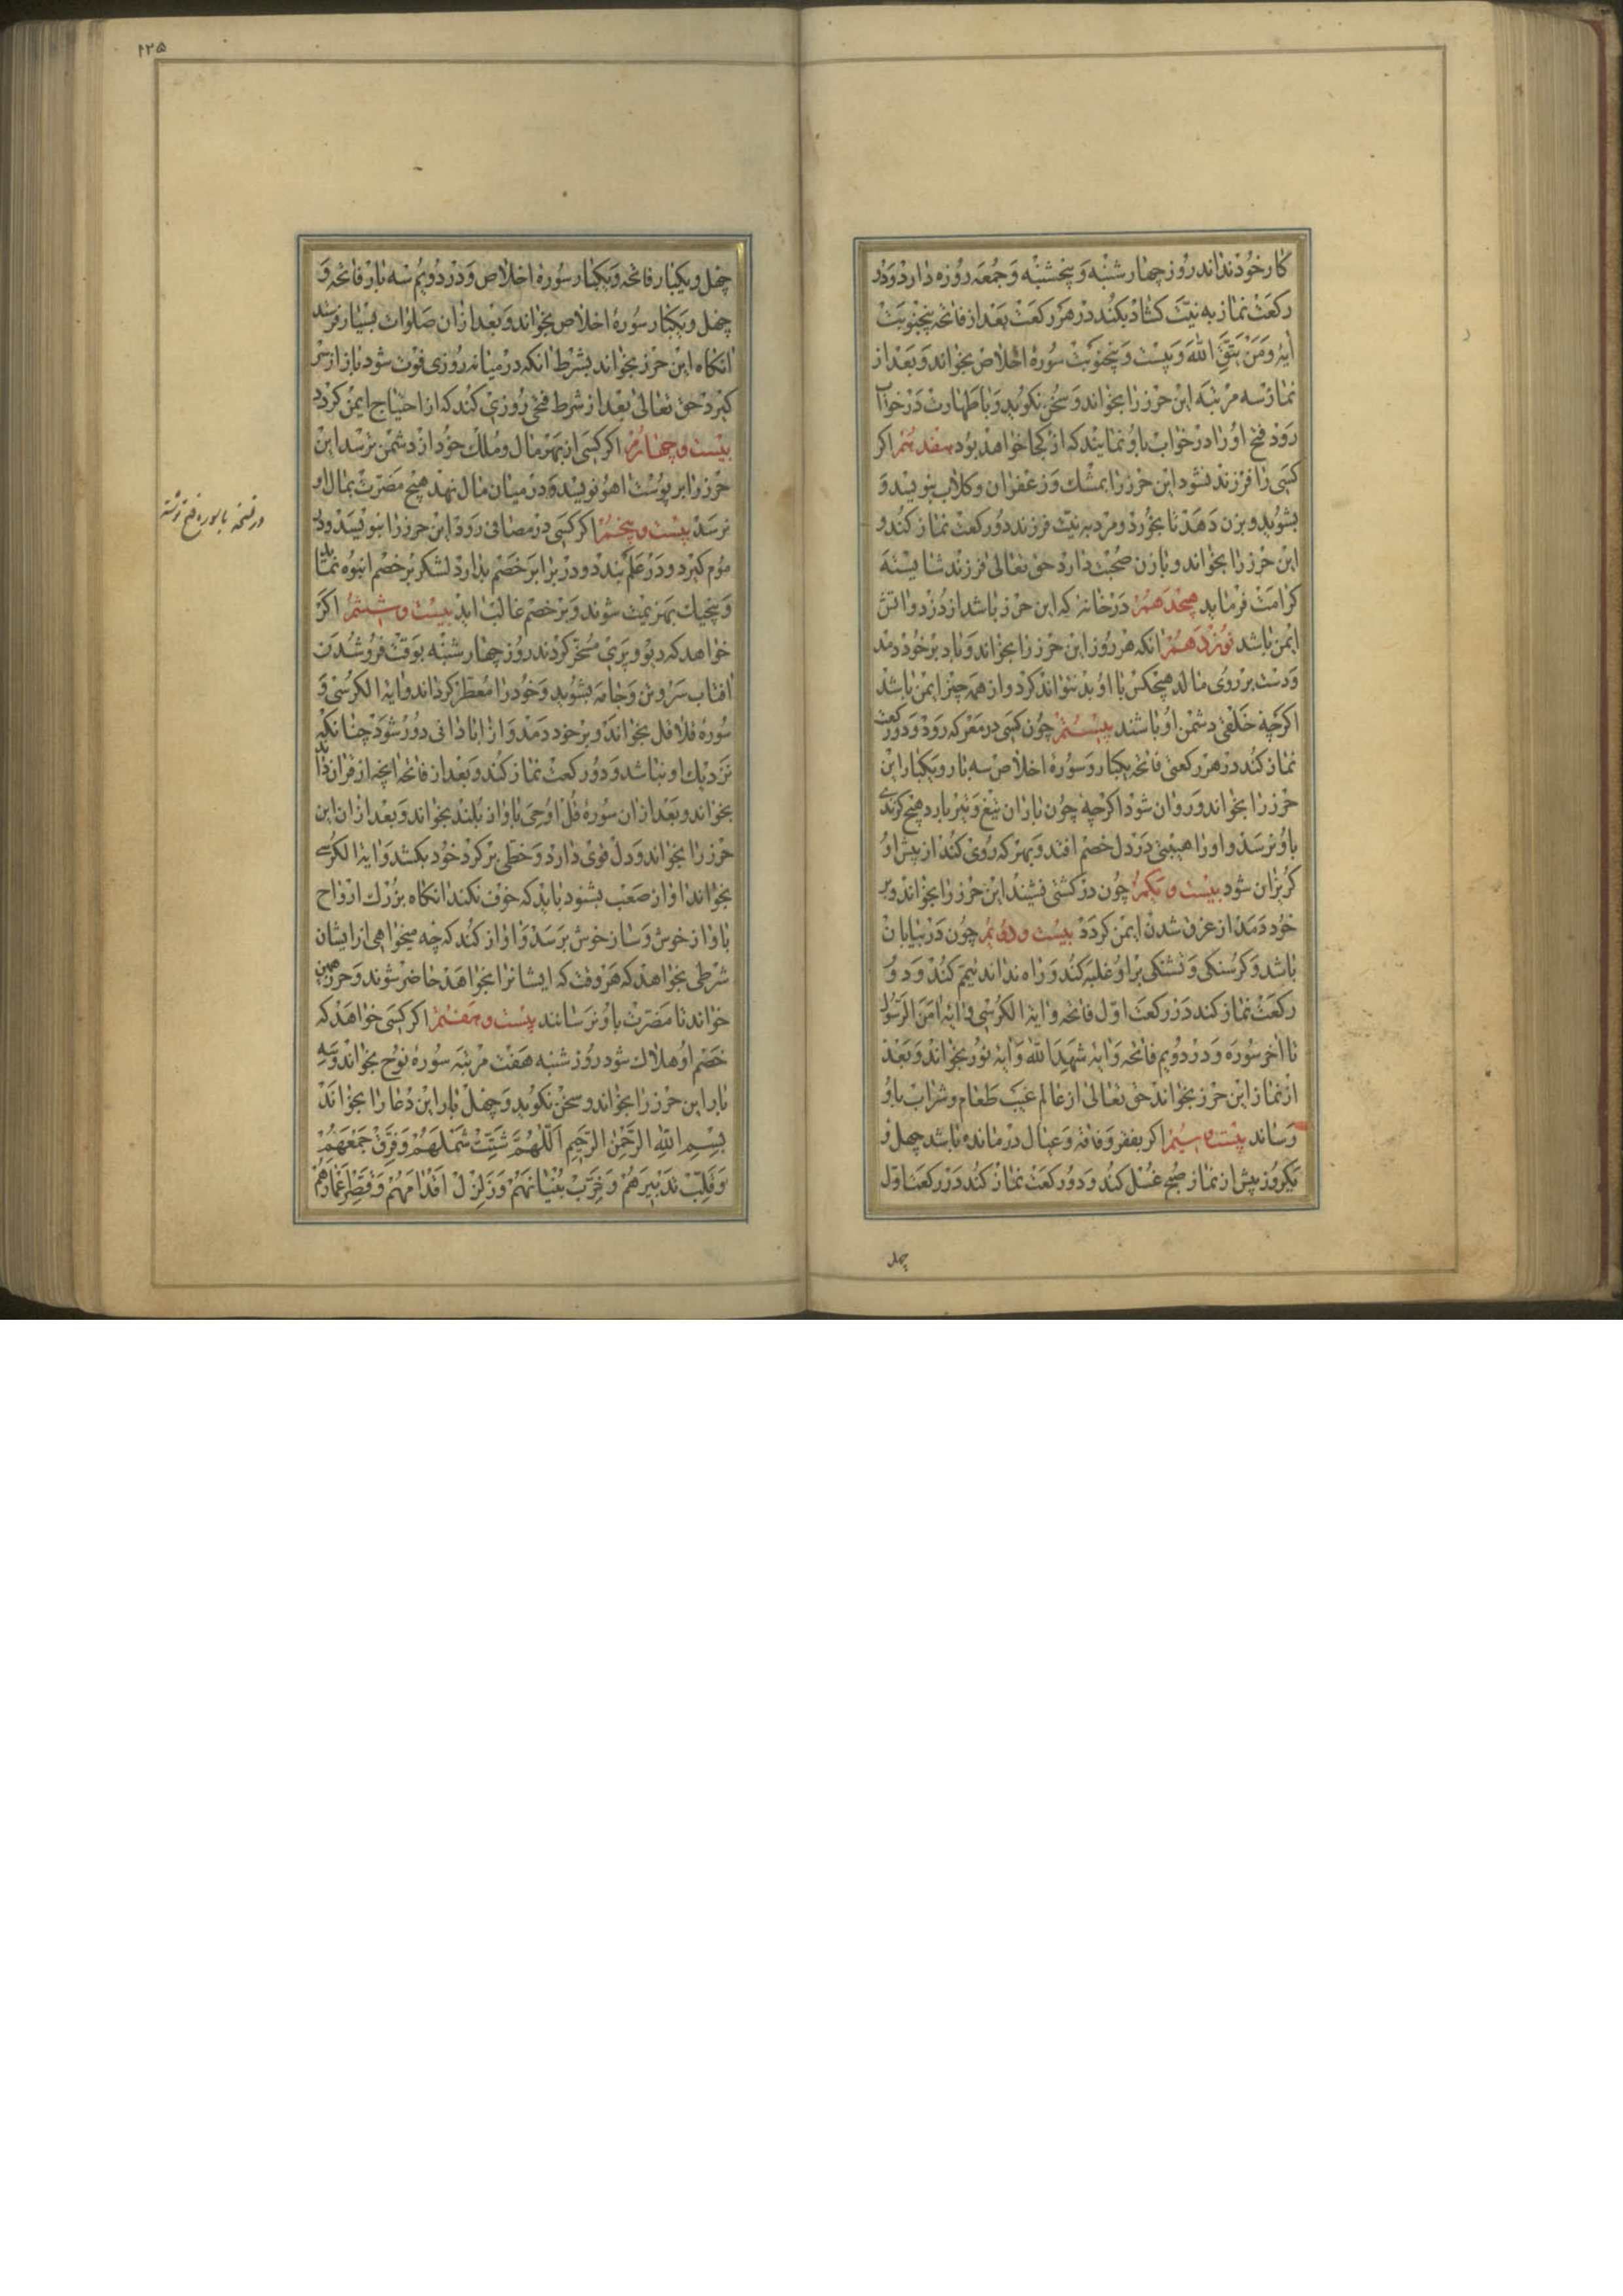 کار خود نداند روز چهارشنبه و پنجشنبه و جمعه روزه دارد و دو
رکعت نماز به نیت کشاد بکند در هر رکعت بعد از فاتحه پنجنوبت
آیه ومن یتق الله و بیست و پنجنوبت سوره اخلاص بخواند و بعد از
نماز سه مرتبه این حرز را بخواند و سخن نکوید و با طهارت در خواب
رود فتح او را در خواب باو نمایند که از کجا خواهد بود هفدهم اکر
کسی را فرزند نشود این حرز را بمشک و زعفران و کلاب بنویسد و
بشوید و بزن دهد تا بخورد و مرد به نیت فرزند دو رکعت نماز کند و
این حرز را بخواند و با زن صحبت دارد حق تعالی فرزند شایسته
کرامت فرماید هیجدهم در خانهٔ که این حرز باشد از دزد و اتش
ایمن باشد نوزدهم انکه هر روز این حرز را بخواند و باد بر خود دمد
و دست بر روی مالد هیچکس با او بد نتواند کرد و از همه چیز ایمن باشد
اکر چه خلقی دشمن او باشند بیستم چون کسی در معرکه رود و دو رکعت
نماز کند در هر رکعتی فاتحه یکبار و سوره اخلاص سه بار و یکبار این
حرز را بخواند و روان شود اکر چه چون باران تیغ و تیر بارد هیچ کزندی
باو نرسد و او را هیبتی در دل خصم افتد و بهر که روی کند از پیش او
کریزان شود بیست و یکم چون در کشتی نشیند این حرز را بخواند و بر
خود دمد از غرق شدن ایمن کردد بیست و دویم چون در بیابان
باشد و کرسنکی و تشنکی بر او غلبه کند و راه نداند تیمم کند و دو
رکعت نماز کند در رکعت اول فاتحه و آیة الکرسی و آیه امن الرسول
تا اخر سوره و در دویم فاتحه و آیه شهد الله و آیه نور بخواند و بعد
از نماز این حرز بخواند حق تعالی از عالم غیب طعام و شراب باو
رساند بیست و سیم اکر بفقر و فاقه و عیال درمانده باشد چهل و
یکروز پیش از نماز صبح غسل کند و دو رکعت نماز کند در رکعت اول
چهل
۱۲۵
چهل و یکبار فاتحه و یکبار سوره اخلاص و در دویم سه بار فاتحه و
چهل و یکبار سوره اخلاص بخواند و بعد از ان صلوات بسیار فرستد
انکاه این حرز بخواند بشرط انکه در میانه روزی فوت شود باز از سر
کیرد حق تعالی بعد از شرط فتحی روزی کند که از احتیاج ایمن کردد
بیست و چهارم اکر کسی از بهر مال و ملک خود از دشمن ترسد این
حرز را بر پوست اهو نویسد و در میان مال نهد هیچ مضرت بمال او
نرسد بیست و پنجم اکر کسی در مصافی رود این حرز را بنویسد و در
موم کیرد و در علم بندد و در برابر خصم بدارد لشکر بر خصم انبوه نماید تا
و بهزیمت شوند و بر خصم غالب اید بیست و ششم اکر
خواهد که دیو و پری مسخر کردند روز چهارشنبه بوقت فرو شدن
افتاب سر و تن و جامه بشوید و خود را معطر کرداند و آیة الکرسی و
سوره فلا قل بخواند و بر خود دمد و از ابادانی دور شود چنانکه
نزدیک او نباشد و دو رکعت نماز کند و بعد از فاتحه انچه از قران داند
بخواند و بعد از ان سوره قل اوحی باواز بلند بخواند و بعد از ان این
حرز را بخواند و دل قوی دارد و خطی بر کرد خود بکشد و آیة الکرسی
بخواند اواز صعب بشنود باید که خوف نکند انکاه بزرک ارواح
باواز خوش و ساز خوش برسد و اواز کند که چه میخواهی از ایشان
شرطی بخواهد که هر وقت که ایشانرا بخواهد حاضر شوند و حرز همین
خواند تا مضرت باو نرسانند بیست و هفتم اکر کسی خواهد که
خصم او هلاک شود روز شنبه هفت مرتبه سوره نوح بخواند و سه
بار این حرز را بخواند و سخن نکوید و چهل بار این دعا را بخواند
بسم الله الرحمن الرحیم اللهم شتت شملهم وفرق جمعهم
وقلب تدبیرهم وخرب بنیانهم وزلزل اقدامهم وقصر اعمارهم
در نسخه با سوره فتح نوشته